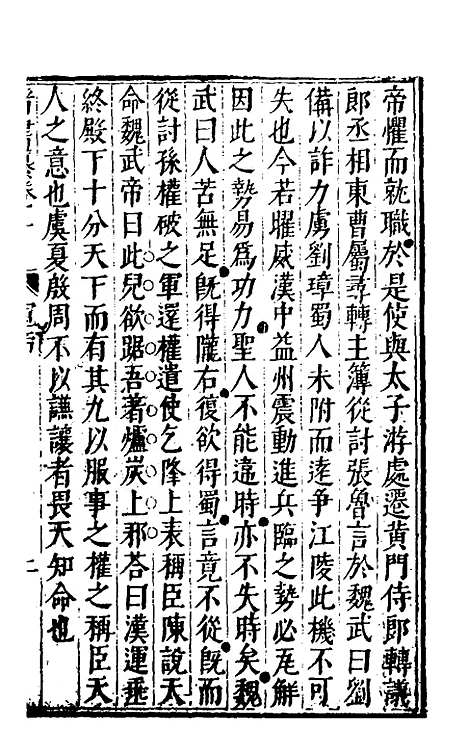 帝懼而就職於是使與太子游處遷黃門侍郎轉議
郎丞相東曹屬尋轉主簿從討張魯言於魏武曰劉
備以詐力虜劉璋蜀人未附而遠爭江陵此機不可
失也今若耀威漢中益州震動進兵臨之勢必瓦解
因此之勢易爲功力聖人不能違時亦不失時矣魏
武曰人苦無足旣得隴右復欲得蜀言竟不從旣而
從討孫權破之軍還權遣使乞降上表稱臣陳說天
命魏武帝曰此兒欲踞吾著爐炭上邪荅曰漢運垂
終殿下十分天下而有其九以服事之權之稱臣天
人之意也虞夏殷周不以謙讓者畏天知命也
二